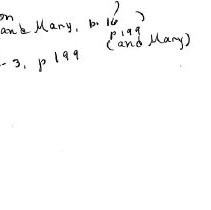 on )
and Mary, p. 16 )
p 199
(and Mary)
- 3, p 199